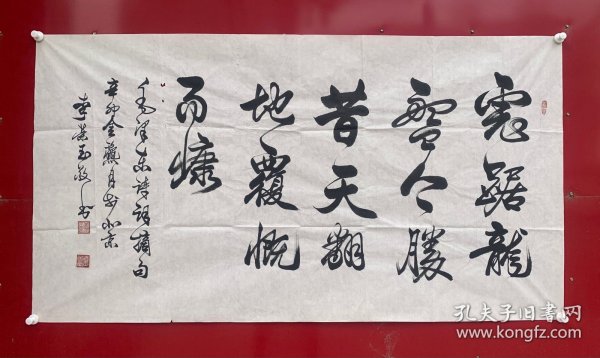 虎踞龍
盤今勝
昔天翻
地覆慨
而慷
毛澤东诗词摘句
辛卯月於北京
孔夫子旧书网
www.kongfz.com